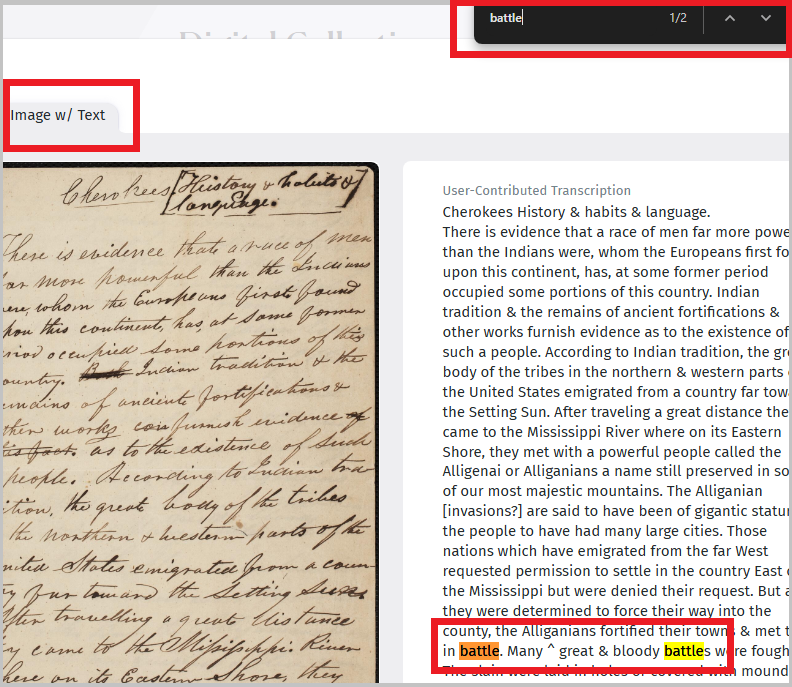 battle
1/2
Image w/ Text
Cherokees [History & habits &
language.]
There is evidence that a race of men
far more powerful than the Indians
were, whom the Europeans first found
upon this continent, has, at some former
period occupied some portions of this
country. Indian tradition & the
remains of ancient fortifications &
other works furnish evidence of
this fact. as to the existence of such
people. According to Indian tra-
dition, the great body of the tribes
the northern & western parts of the
United States emigrated from a coun
try far toward the Setting Sun.
After travelling a great distance
they came to the Mississippi River
where on its Eastern Shore, they
User-Contributed Transcription
Cherokees History & habits & language.
There is evidence that a race of men far more powe
than the Indians were, whom the Europeans first fo
upon this continent, has, at some former period
occupied some portions of this country. Indian
tradition & the remains of ancient fortifications &
other works furnish evidence as to the existence of
such a people. According to Indian tradition, the gre
body of the tribes in the northern & western parts
the United States emigrated from a country far tow
the Setting Sun. After traveling a great distance the
came to the Mississippi River where on its Eastern
Shore, they met with a powerful people called the
Alligenai or Alliganians a name still preserved in so
of our most majestic mountains. The Alliganian
[invasions?] are said to have been of gigantic statur
the people to have had many large cities. Those
nations which have emigrated from the far West
requested permission to settle in the country East
the Mississippi but were denied their request. But a
they were determined to force their way into the
county, the Alliganians fortified their towns & met t
in battle. Many ^ great & bloody battles were fough
The slain were laid in holes or covered with mound